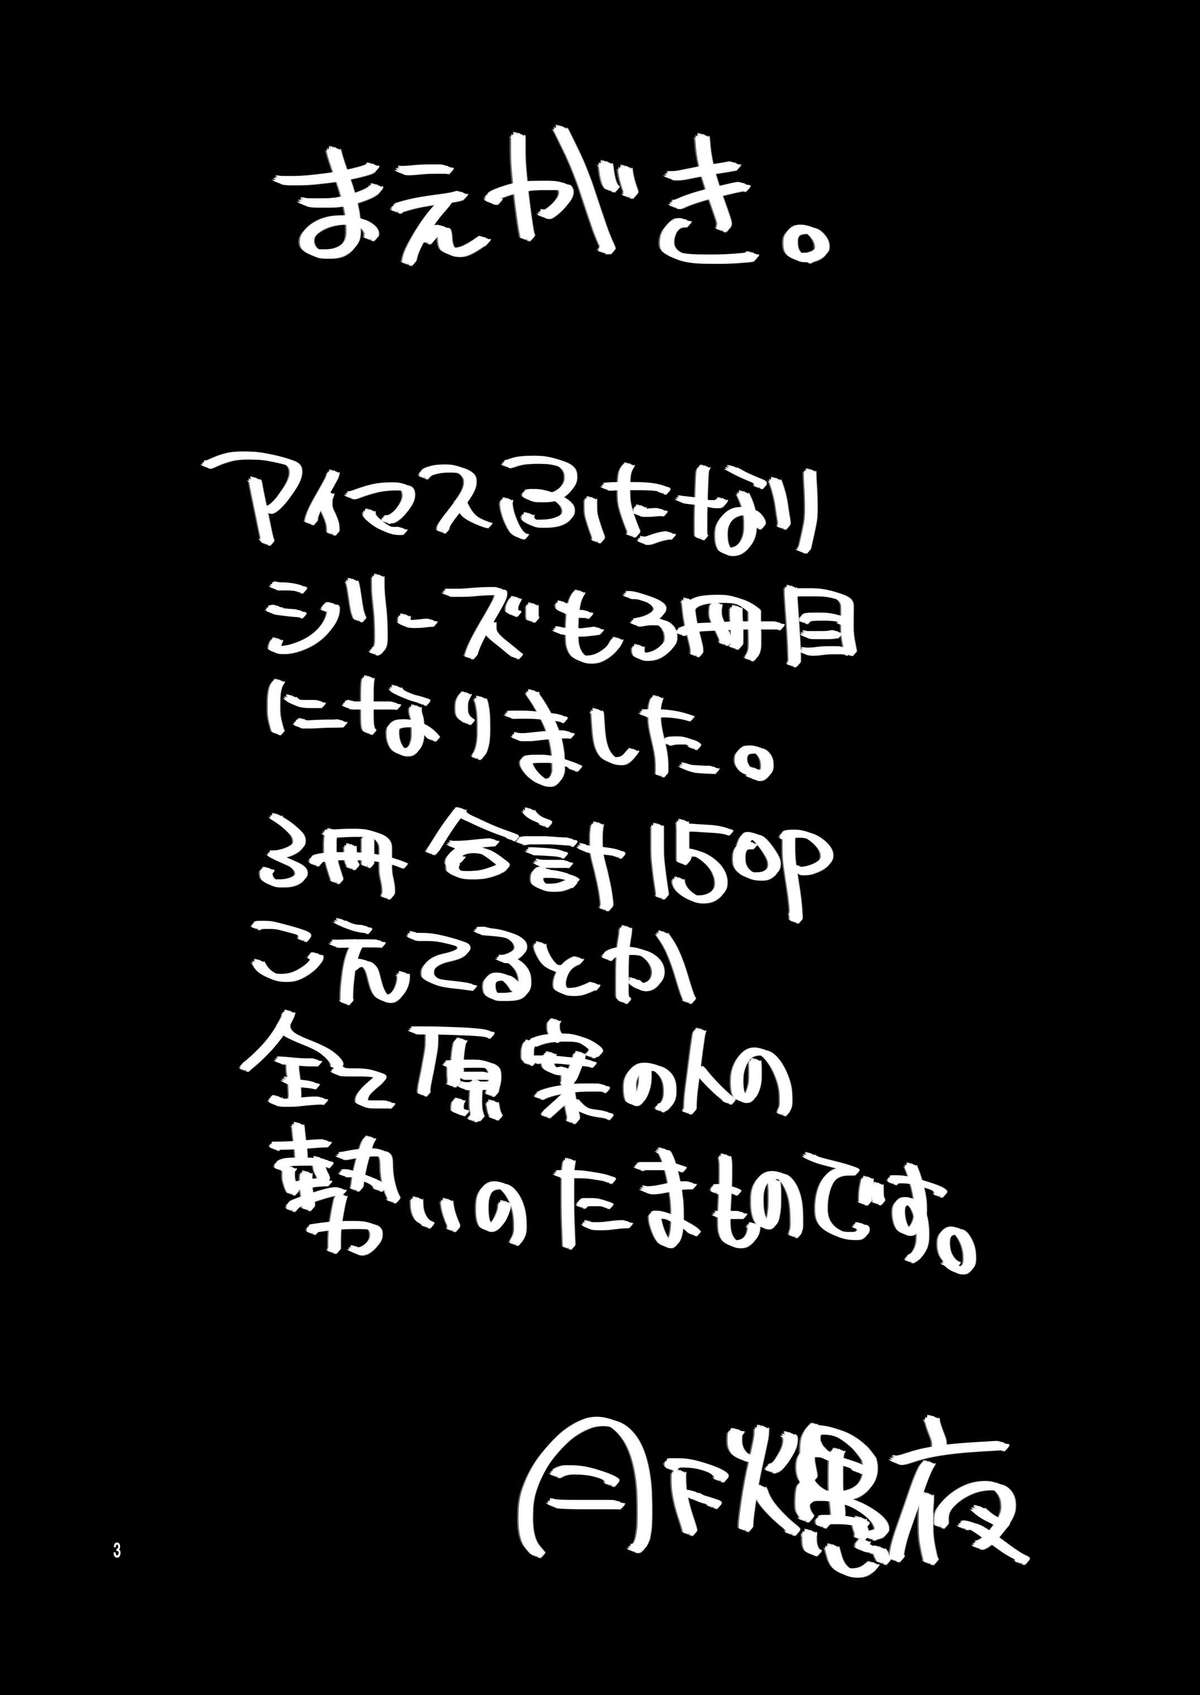 まえがき。
アイマスふたなり
シリーズも3冊目
になりました。
3冊合計150P
こえてるとか
全て原案の人の
勢いのたまものです。
月下
夜
3